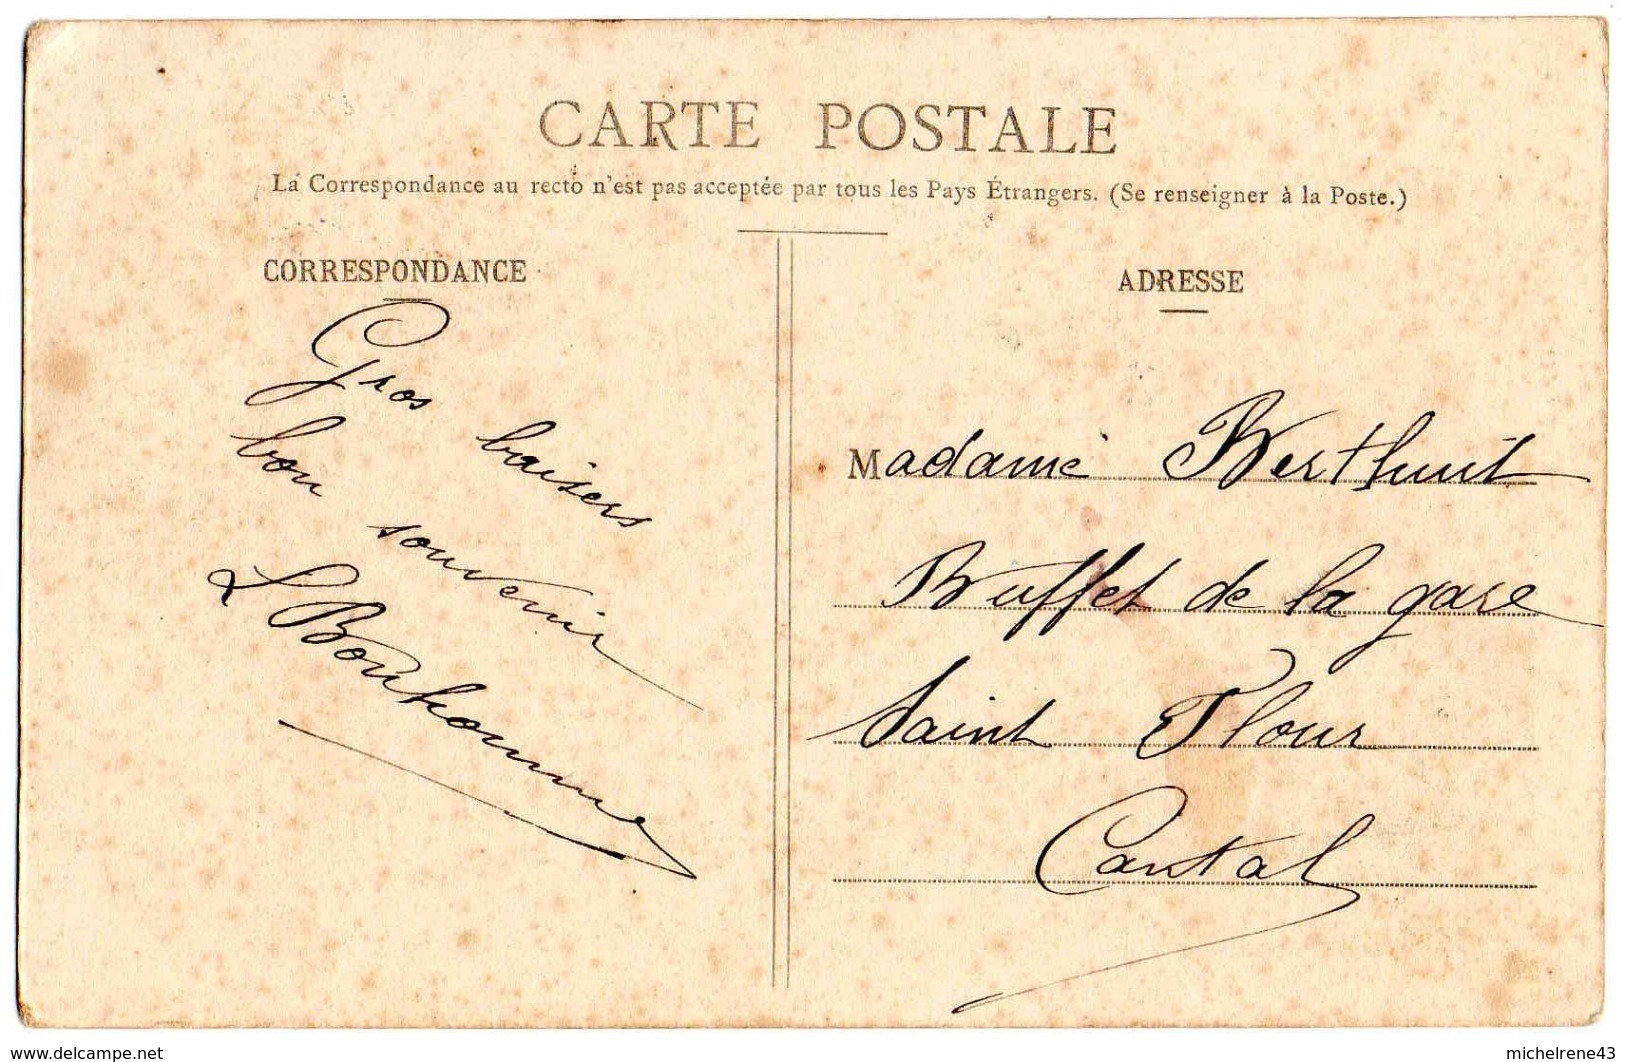 CARTE POSTALE
La Correspondance au recto n'est pas acceptée par tous les Pays Étrangers. (Se renseigner à la Poste.)
CORRESPONDANCE
Gros baisers
bon souvenir
L Bonhomme
ADRESSE
Madame Berthuit
Buffet de la gare
Saint Flour
Cantal
www.delcampe.net
michelrene43